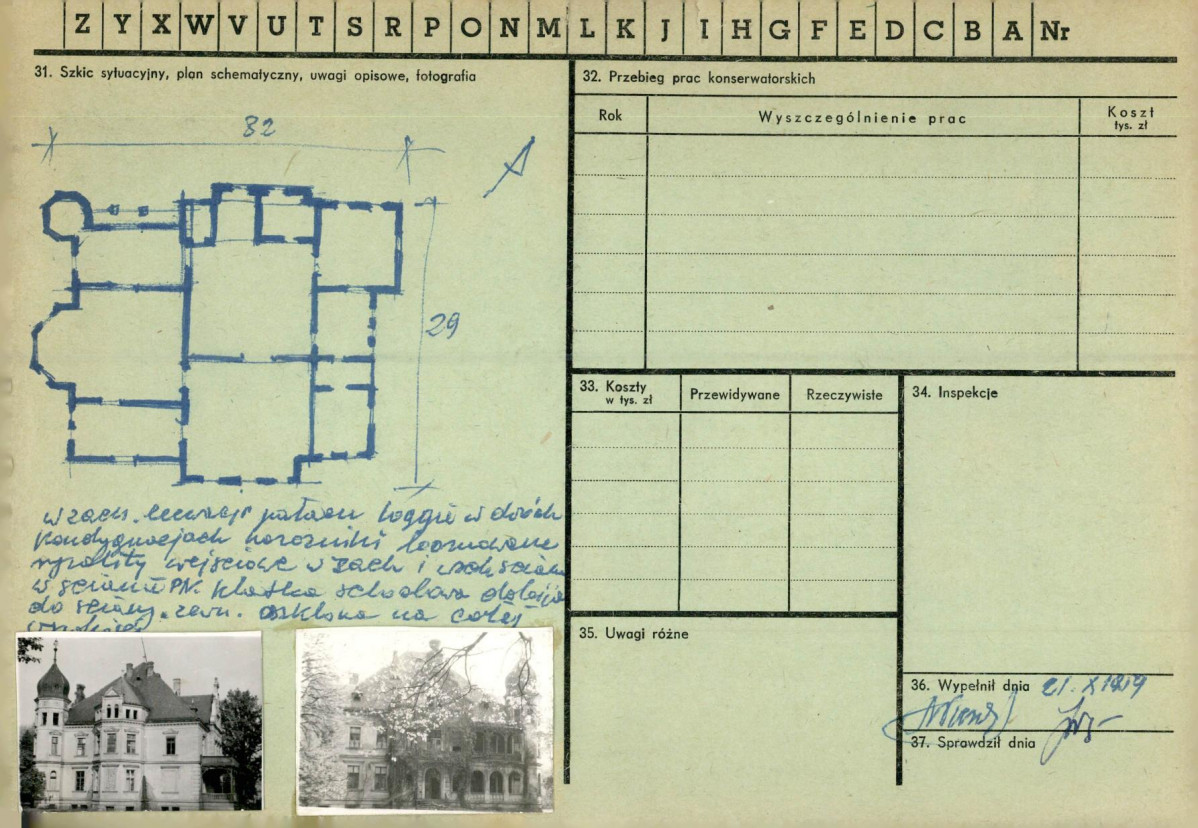 Z Y X W V U T S R P O N M L K J I H G F E D C B A Nr
31. Szkic sytuacyjny, plan schematyczny, uwagi opisowe, fotografia
32
29
w zach. elewacji pałacu loggie w dwóch
kondygnacjach narożniki boniowane
ryzality wejściowe w zach i wsch ścianie
w ścianie PN. klatka schodowa
do ściany zewn. oszklona na całej
32. Przebieg prac konserwatorskich
Rok
Wyszczególnienie prac
Koszt
tys. zł
33. Koszty
w tys. zł
Przewidywane
Rzeczywiste
34. Inspekcje
35. Uwagi różne
36. Wypełnił dnia 21. X 19
37. Sprawdził dnia